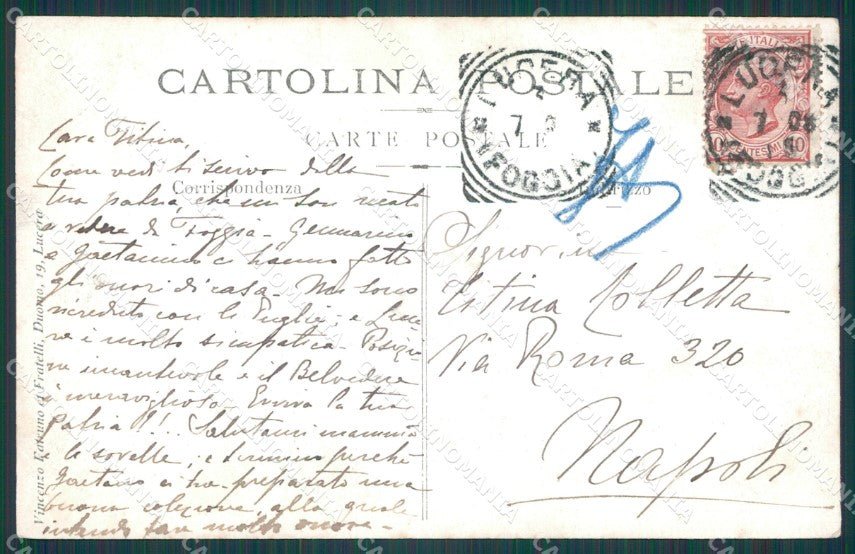 CARTOLINA POSTALE
CARTE POSTALE
Corrispondenza
LUCERA
7
FOGGIA
LUCERA
7 08
FOGGIA
10
Cara Titina,
Come vedi ti scrivo dalla
tua patria, che mi son recato
a vedere da Foggia - Gennarino
e Gaetanino ci hanno fatto
gli onori di casa - Mi sono
ricreduto con le Puglie; e Luce
ra è molto simpatica. Posizio
ne incantevole e il Belvedere
è meraviglioso. Evviva la tua
patria!!! Salutami mammà
le sorelle, e termino perché
Gaetano ci ha preparato una
buona colezione, alla quale
intendo fare molto onore -
Signorina
Titina Colletta
Via Roma 320
Napoli
Vincenzo Catcuno di Fratelli, Duomo, 19, Lucera
CARTOLINOMANIA